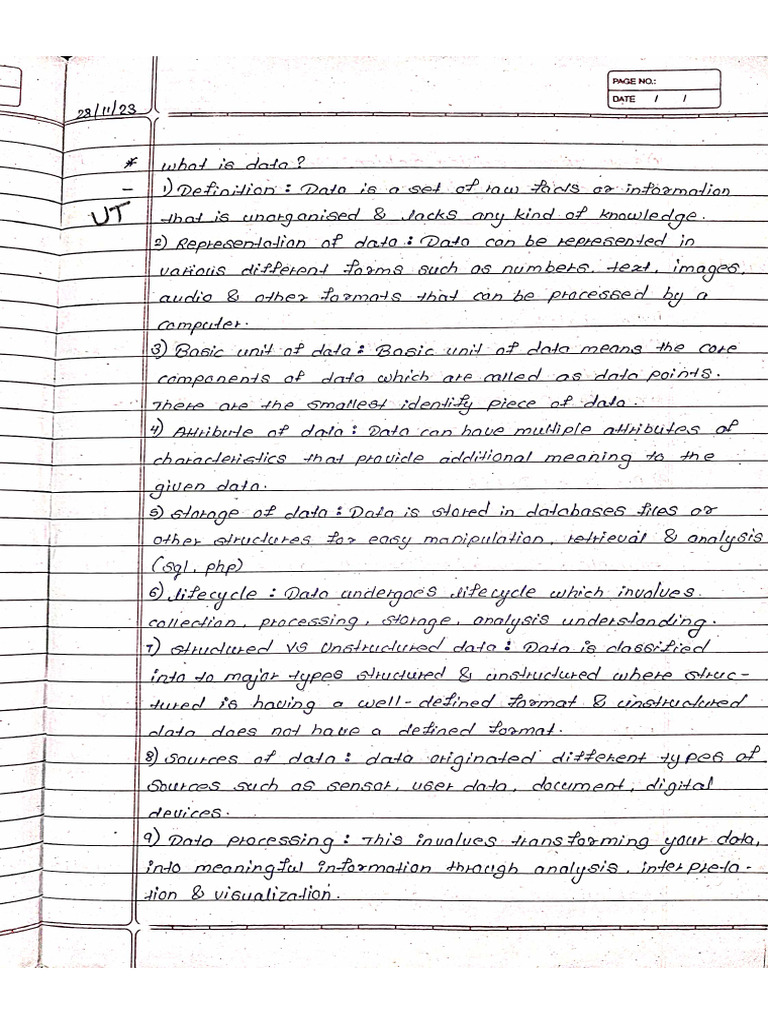 PAGE NO.:
DATE / /
28/11/23
* What is data?
- 1) Definition : Data is a set of raw facts or information
UT that is unorganised & lacks any kind of knowledge.
2) Representation of data : Data can be represented in
various different forms such as numbers, text, images,
audio & other formats that can be processed by a
computer.
3) Basic unit of data : Basic unit of data means the core
components of data which are called as data points.
There are the smallest identify piece of data.
4) Attribute of data : Data can have multiple attributes of
characteristics that provide additional meaning to the
given data.
5) Storage of data : Data is stored in databases files or
other structures for easy manipulation, retrieval & analysis
(sql, php)
6) lifecycle : Data undergoes lifecycle which involves
collection, processing, storage, analysis understanding.
7) Structured VS Unstructured data : Data is classified
into to major types structured & unstructured where struc-
tured is having a well-defined format & unstructured
data does not have a defined format.
8) Sources of data : data originated different types of
sources such as sensor, user data, document, digital
devices.
9) Data processing : This involves transforming your data,
into meaningful information through analysis, interpreta-
tion & visualization.